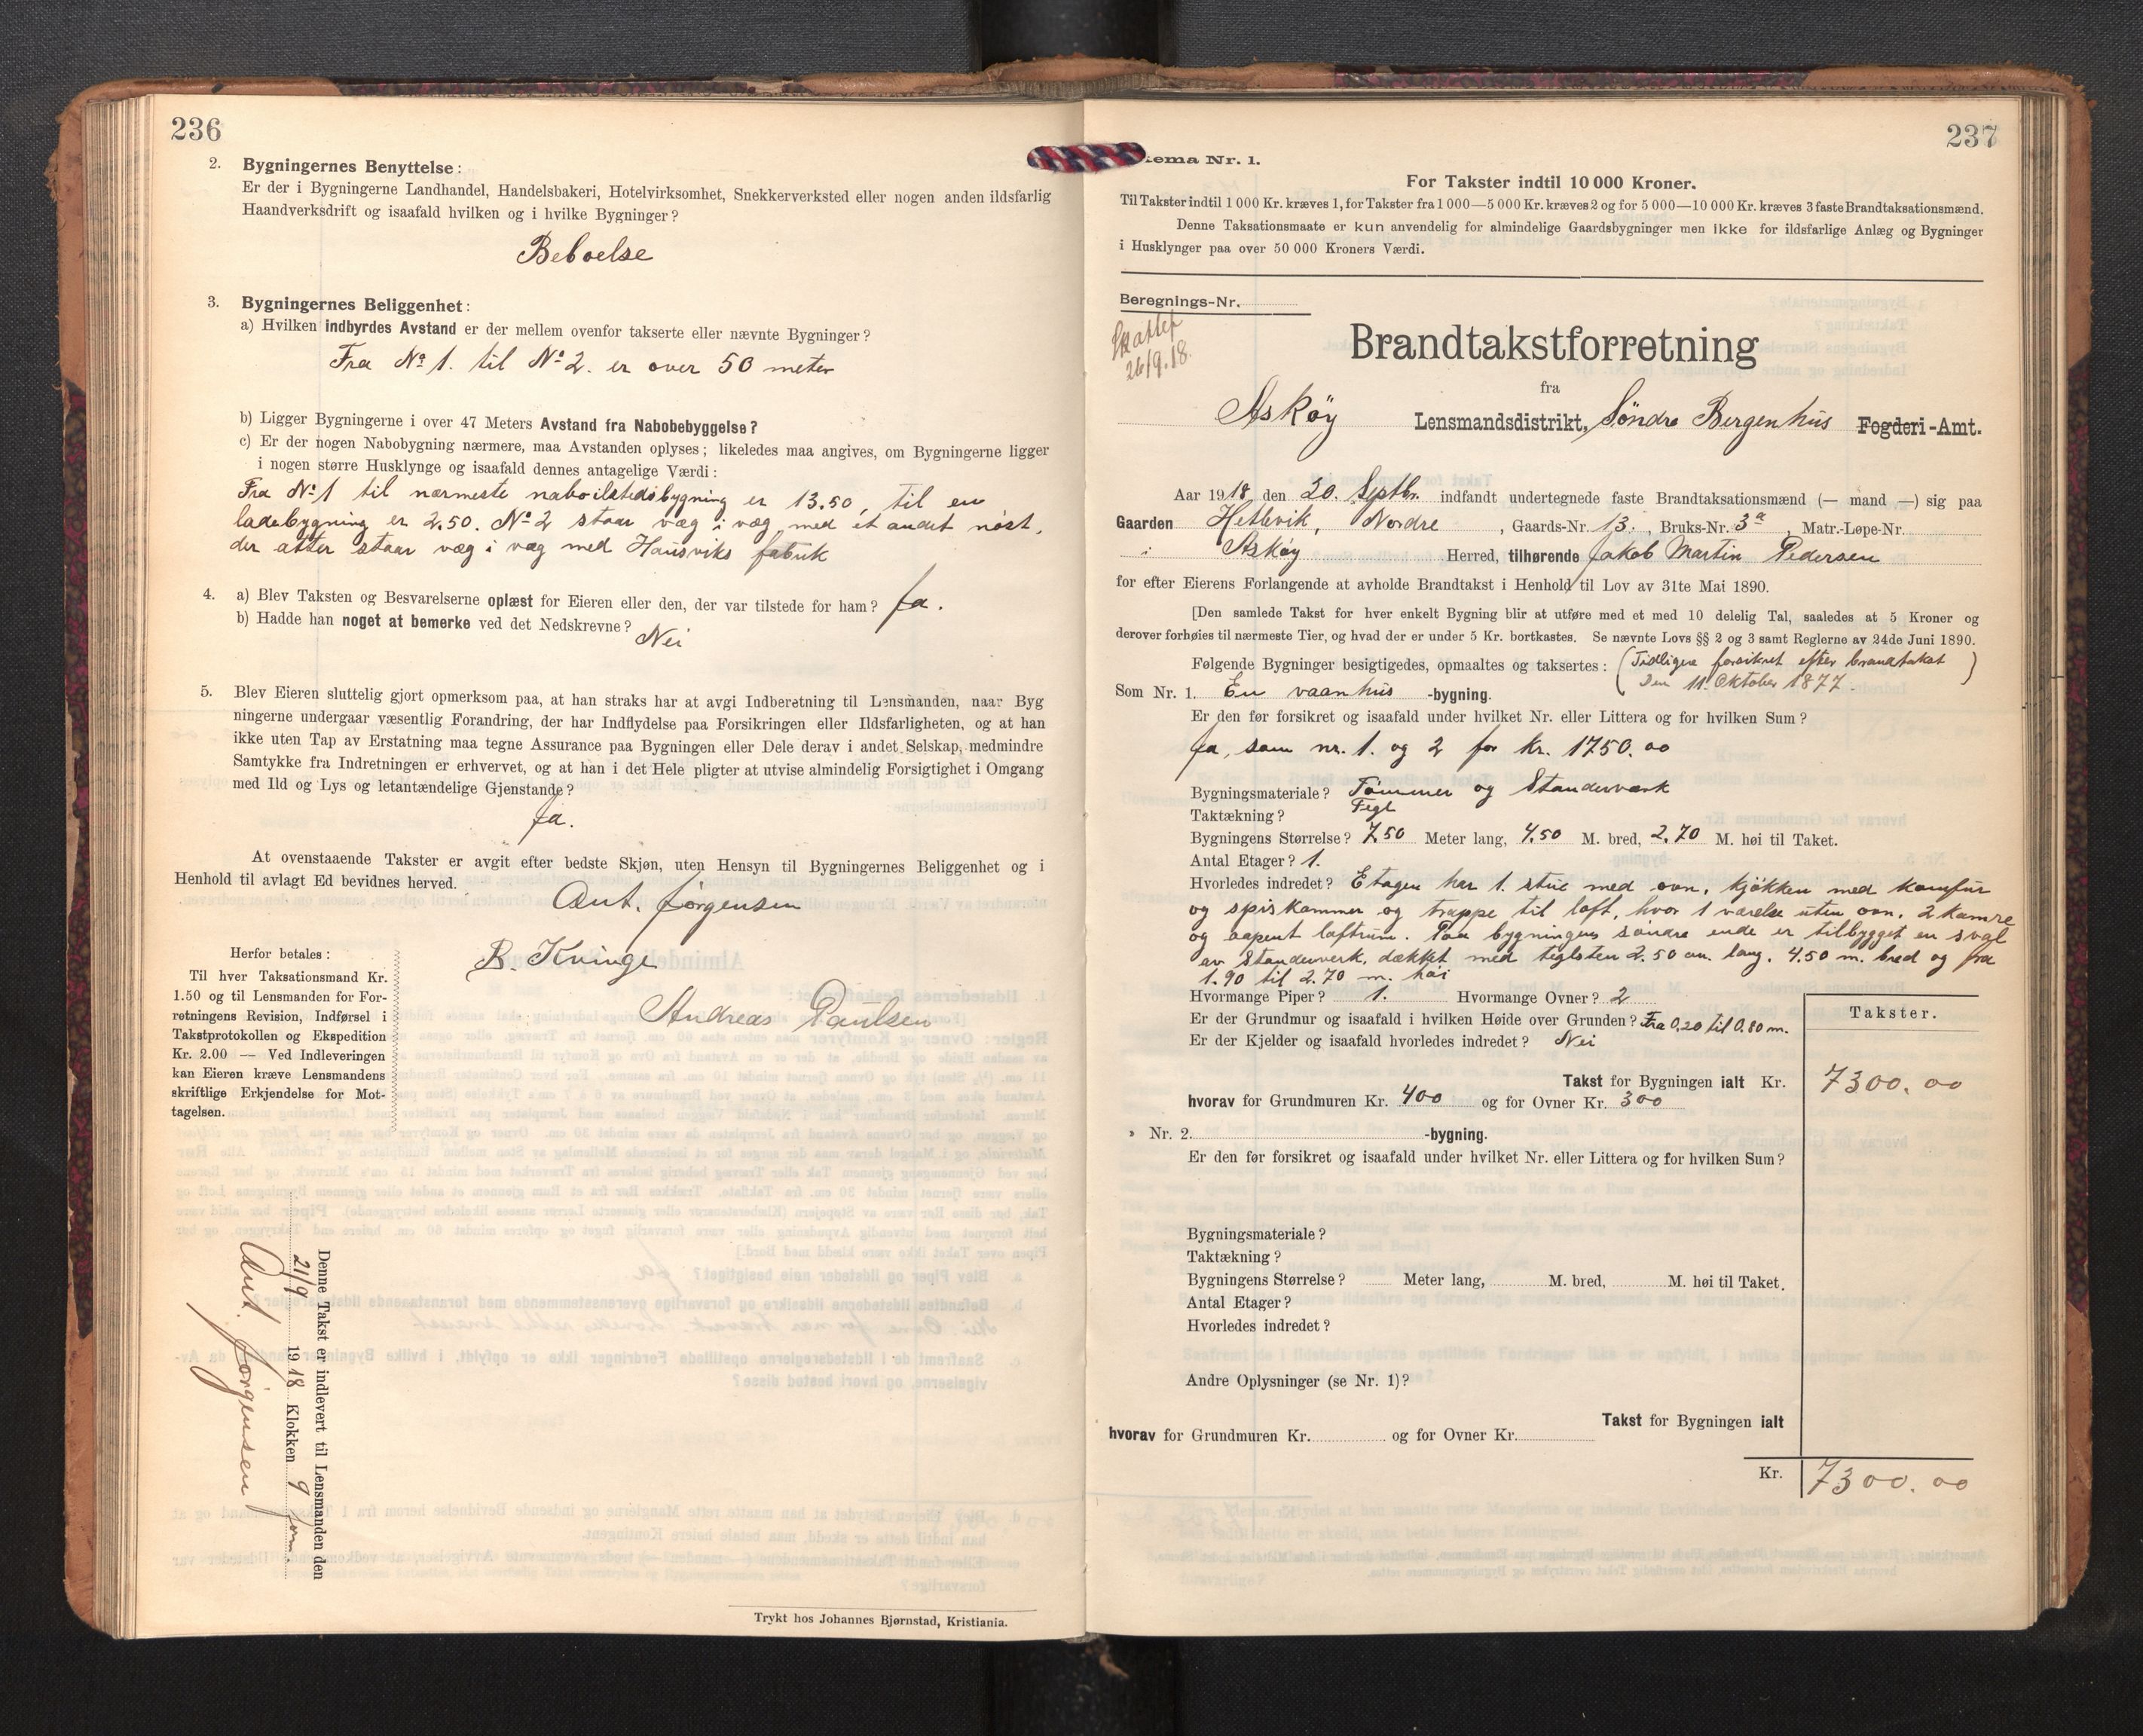 236
2. Bygningernes Benyttelse:
Er der i Bygningerne Landhandel, Handelsbakeri, Hotelvirksomhet, Snekkerverksted eller nogen anden ildsfarlig
Haandverksdrift og isaafald hvilken og i hvilke Bygninger?
Beboelse
3. Bygningernes Beliggenhet:
a) Hvilken indbyrdes Avstand er der mellem ovenfor takserte eller nævnte Bygninger?
Fra No 1. til No 2. er over 50 meter
b) Ligger Bygningerne i over 47 Meters Avstand fra Nabobebyggelse?
c) Er der nogen Nabobygning nærmere, maa Avstanden oplyses; likeledes maa angives, om Bygningerne ligger
i nogen større Husklynge og isaafald dennes antagelige Værdi:
Fra No 1 til nærmeste naboilstedsbygning er 13.50, til en
ladebygning er 2.50. No 2 staar væg i væg med et andet nøst,
der atter staar væg i væg med Hausviks fabrik
4. a) Blev Taksten og Besvarelserne oplæst for Eieren eller den, der var tilstede for ham? Ja.
b) Hadde han noget at bemerke ved det Nedskrevne? Nei
5. Blev Eieren sluttelig gjort opmerksom paa, at han straks har at avgi Indberetning til Lensmanden, naar Byg
ningerne undergaar væsentlig Forandring, der har Indflydelse paa Forsikringen eller Ildsfarligheten, og at han
ikke uten Tap av Erstatning maa tegne Assurance paa Bygningen eller Dele derav i andet Selskap, medmindre
Samtykke fra Indretningen er erhvervet, og at han i det Hele pligter at utvise almindelig Forsigtighet i Omgang
med Ild og Lys og letantændelige Gjenstande?
Ja.
At ovenstaaende Takster er avgit efter bedste Skjøn, uten Hensyn til Bygningernes Beliggenhet og i
Henhold til avlagt Ed bevidnes herved.
Ant. Jørgensen
B. Kvinge
Andreas Paulsen
Herfor betales:
Til hver Taksationsmand Kr.
1.50 og til Lensmanden for For-
retningens Revision, Indførsel i
Takstprotokollen og Ekspedition
Kr. 2.00 — Ved Indleveringen
kan Eieren kræve Lensmandens
skriftlige Erkjendelse for Mot-
tagelsen.
Denne Takst er indlevert til Lensmanden den
21/9 1918 Klokken 9 form.
Ant. Jørgensen
Trykt hos Johannes Bjørnstad, Kristiania.
237
ema Nr. 1.
For Takster indtil 10 000 Kroner.
Til Takster indtil 1 000 Kr. kræves 1, for Takster fra 1 000—5 000 Kr. kræves 2 og for 5 000—10 000 Kr. kræves 3 faste Brandtaksationsmænd.
Denne Taksationsmaate er kun anvendelig for almindelige Gaardsbygninger men ikke for ildsfarlige Anlæg og Bygninger
i Husklynger paa over 50 000 Kroners Værdi.
Beregnings-Nr.
26/9.18.
Brandtakstforretning
fra
Askøy Lensmandsdistrikt, Söndre Bergenhus Fogderi-Amt.
Aar 1918 den 20. Septbr. indfandt undertegnede faste Brandtaksationsmænd (— mand —) sig paa
Gaarden Hetlevik, Nordre, Gaards-Nr. 13., Bruks-Nr. 3a, Matr.-Løpe-Nr.
i Askøy Herred, tilhørende Jakob Martin Pedersen
for efter Eierens Forlangende at avholde Brandtakst i Henhold til Lov av 31te Mai 1890.
[Den samlede Takst for hver enkelt Bygning blir at utføre med et med 10 delelig Tal, saaledes at 5 Kroner og
derover forhøies til nærmeste Tier, og hvad der er under 5 Kr. bortkastes. Se nævnte Lovs §§ 2 og 3 samt Reglerne av 24de Juni 1890.
Følgende Bygninger besigtigedes, opmaaltes og taksertes: (Tidligere forsikret efter brandtakst
den 11. Oktober 1877.)
Som Nr. 1. En vaanhus -bygning.
Er den før forsikret og isaafald under hvilket Nr. eller Littera og for hvilken Sum?
Ja, som nr. 1. og 2 for kr. 1750.00
Bygningsmateriale? Tømmer og Standerværk
Taktækning? Tegl
Bygningens Størrelse? 7.50 Meter lang, 4.50 M. bred, 2.70 M. høi til Taket.
Antal Etager? 1.
Hvorledes indredet? Etagen har 1. stue med ovn, kjøkken med komfur
og spiskammer og trappe til loft, hvor 1 værelse uten ovn, 2 kamre
og aapent loftrum. Paa bygningens søndre ende er tilbygget en sval
av Standerverk, dækket med teglsten 2.50 m. lang, 4.50 m. bred og fra
1.90 til 2.70 m. høi
Hvormange Piper? 1. Hvormange Ovner? 2
Er der Grundmur og isaafald i hvilken Høide over Grunden? Fra 0,20 til 0,80 m.
Er der Kjelder og isaafald hvorledes indredet? Nei
Takster.
Takst for Bygningen ialt Kr. 7300.00
hvorav for Grundmuren Kr. 400 og for Ovner Kr. 300
» Nr. 2. -bygning.
Er den før forsikret og isaafald under hvilket Nr. eller Littera og for hvilken Sum?
Bygningsmateriale?
Taktækning?
Bygningens Størrelse? Meter lang, M. bred, M. høi til Taket.
Antal Etager?
Hvorledes indredet?
Andre Oplysninger (se Nr. 1)?
Takst for Bygningen ialt
hvorav for Grundmuren Kr. og for Ovner Kr.
Kr. 7300.00